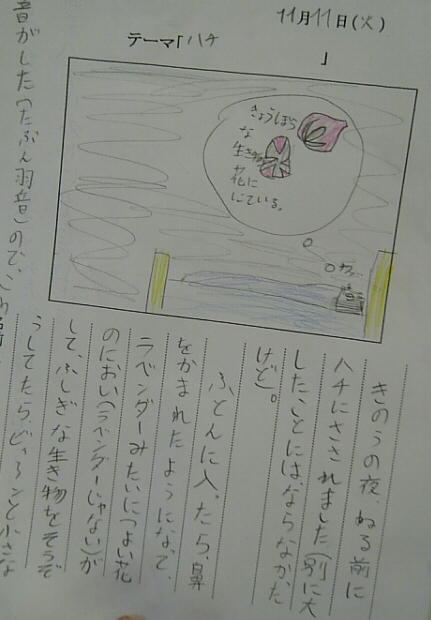 11月11日(火)
テーマ「ハチ」
きょうぼう
な
生き物
花に
にている。
きのうの夜、ねる前に
ハチにさされました(別に大
したことにはならなかった
けど。
ふとんに入ったら、鼻
をかまれたようになって、
ラベンダーみたいにつよい花
のにおい(ラベンダーじゃない)が
して、ふしぎな生き物をそうぞ
うしてたら、ビィ〜ンと小さな
音がした(たぶん羽音)ので、